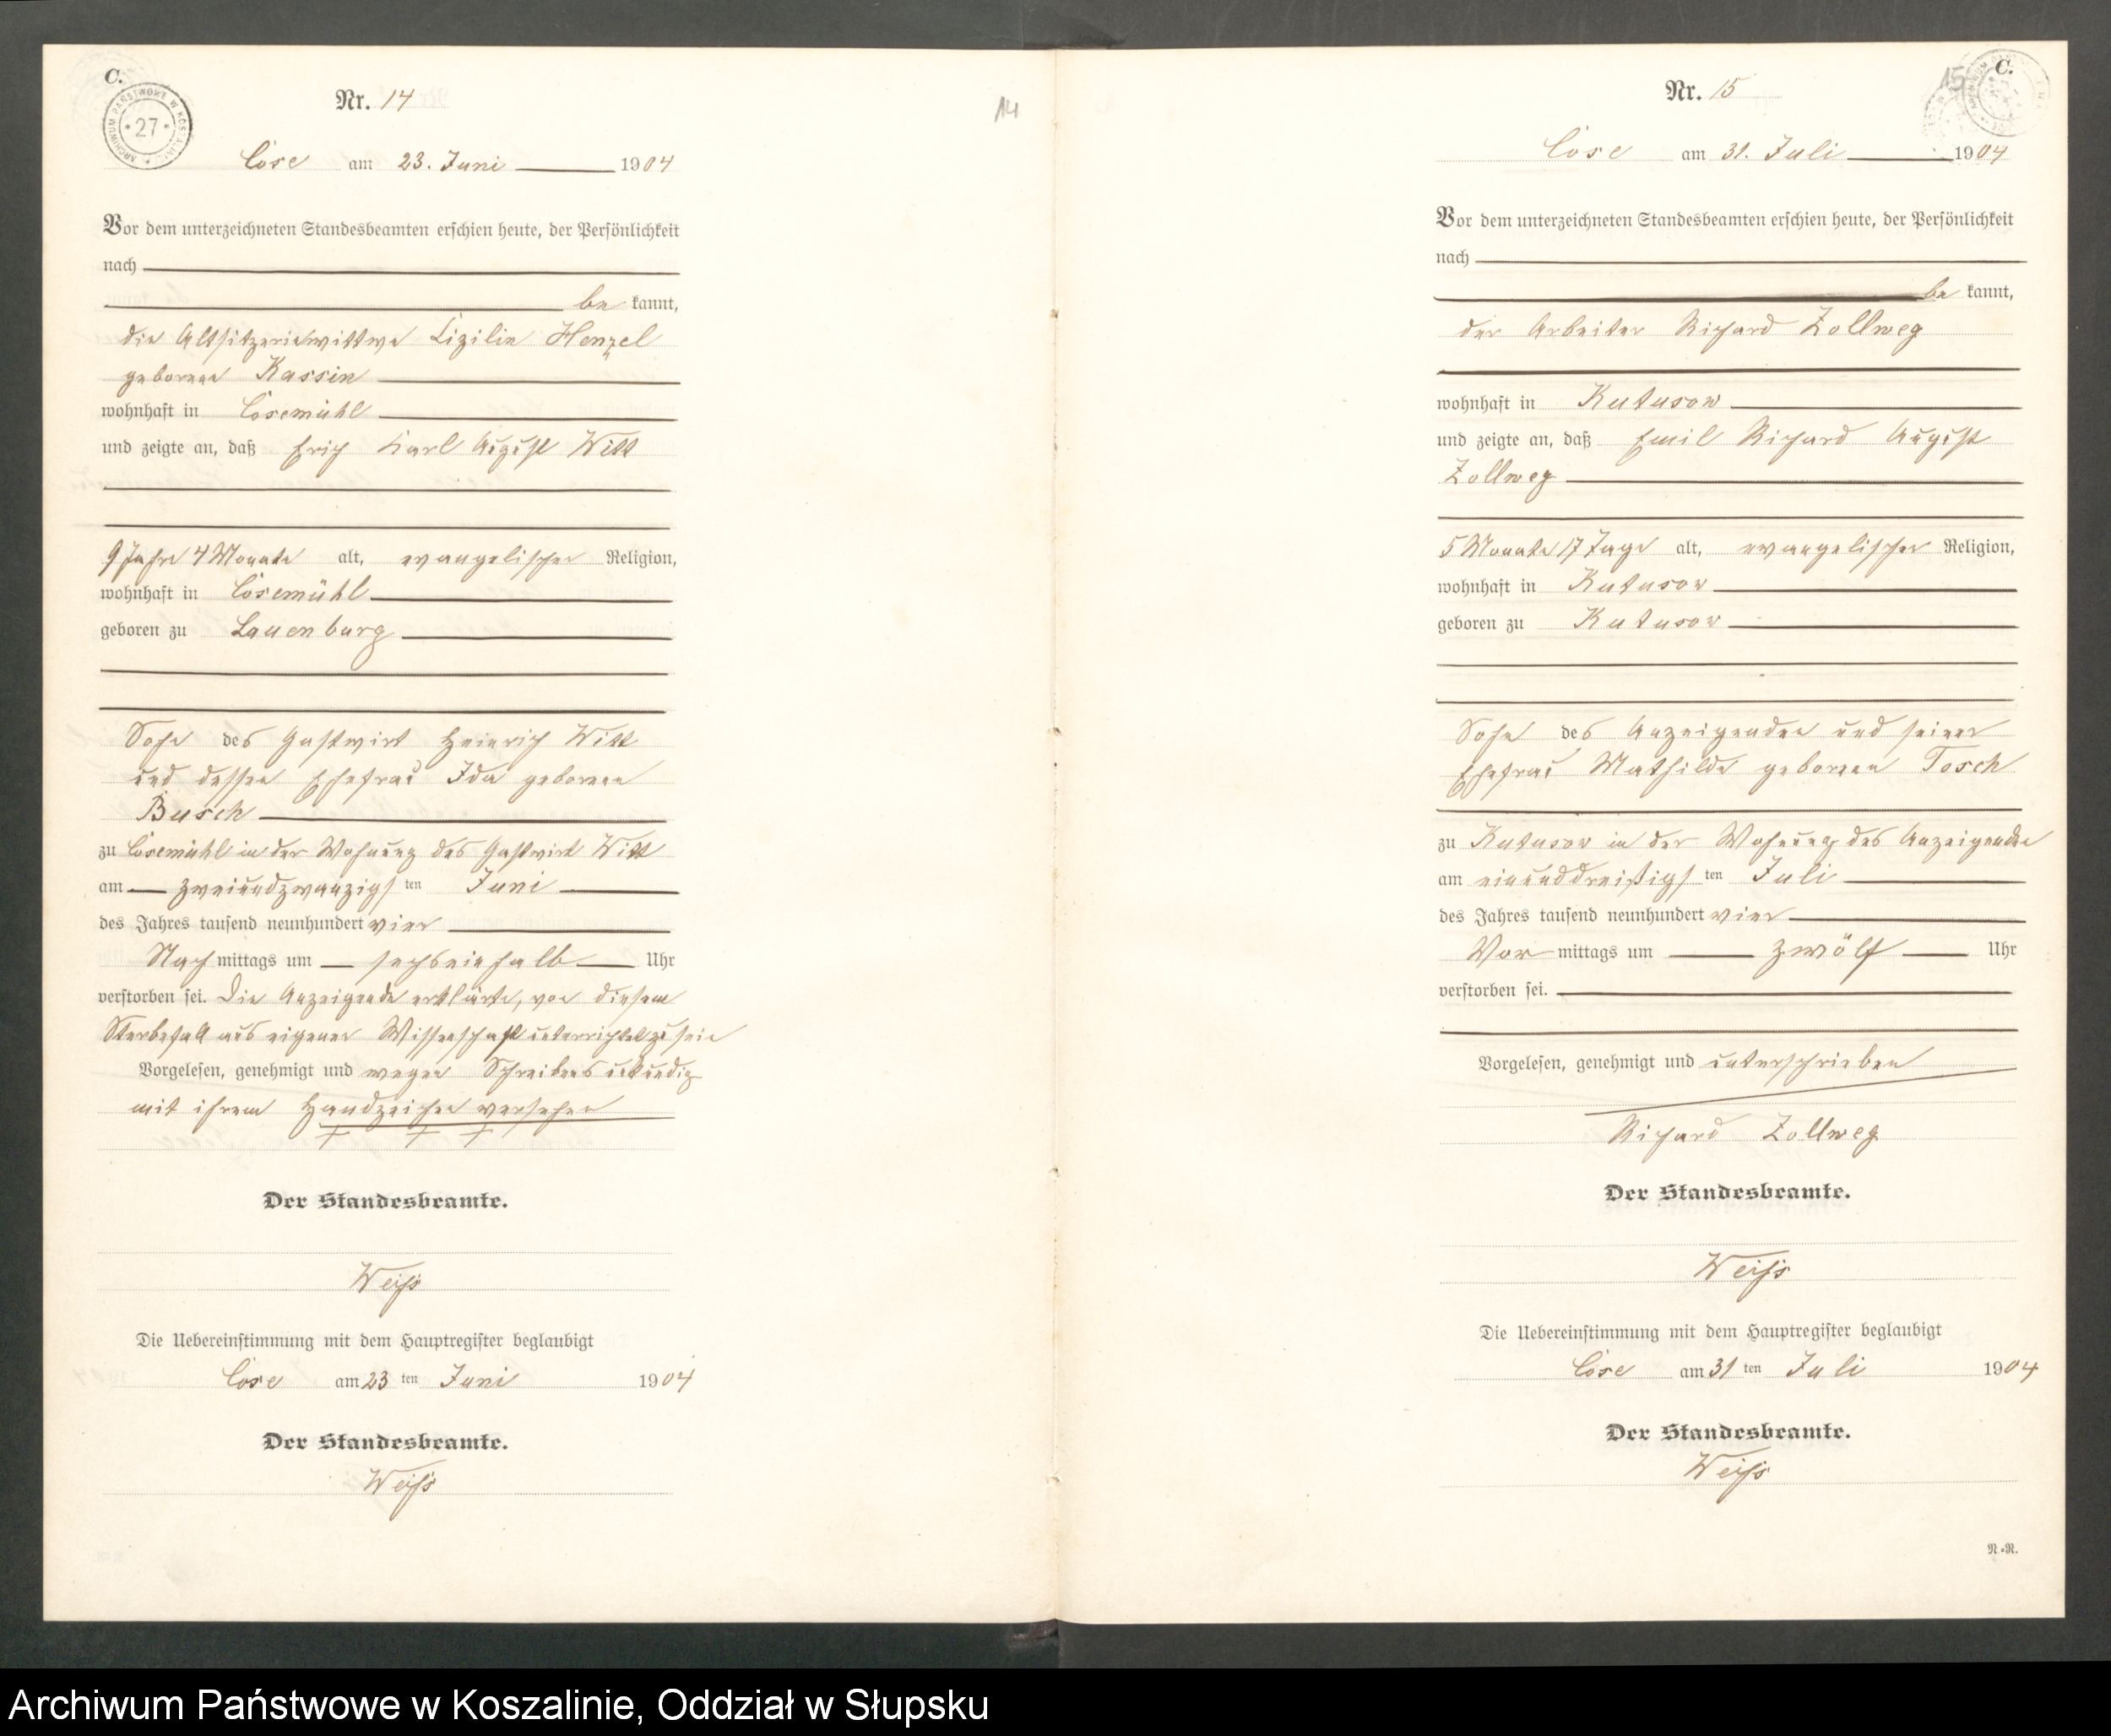 C.
ARCHIWUM PAŃSTWOWE W KOSZALINIE
* 27 *
Nr. 14
14
Cöse am 23. Juni 1904
Vor dem unterzeichneten Standesbeamten erschien heute, der Persönlichkeit
nach
be kannt,
die Altsitzer Henzel
geborene Kassin
wohnhaft in Cösemühl
und zeigte an, daß Erich Karl August Witt
9 Jahre 4 Monate alt, evangelischer Religion,
wohnhaft in Cösemühl
geboren zu Lauenburg
Sohn des Gastwirt Heinrich Witt
und dessen Ehefrau Ida geborene
Busch
zu Cösemühl in der Wohnung des Gastwirt Witt
am zweiundzwanzigsten Juni
des Jahres tausend neunhundert vier
Nach mittags um sechseinhalb Uhr
verstorben sei. Die Anzeigende erklärte, von diesem
Sterbefall aus eigener Wissenschaft unterrichtet zu sein
Vorgelesen, genehmigt und wegen Schreibensunkundig
mit ihrem Handzeichen versehen
+ + +
Der Standesbeamte.
Weiß
Die Uebereinstimmung mit dem Hauptregister beglaubigt
Cöse am 23 ten Juni 1904
Der Standesbeamte.
Weiß
C.
15
Nr. 15
Cöse am 31. Juli 1904
Vor dem unterzeichneten Standesbeamten erschien heute, der Persönlichkeit
nach
be kannt,
der Arbeiter Richard Zollweg
wohnhaft in Kutusow
und zeigte an, daß Emil Richard August
Zollweg
5 Monate 17 Tage alt, evangelischer Religion,
wohnhaft in Kutusow
geboren zu Kutusow
Sohn des Anzeigenden und seiner
Ehefrau Mathilde geborenen Tosch
zu Kutusow in der Wohnung des Anzeigenden
am einunddreißigsten Juli
des Jahres tausend neunhundert vier
Vor mittags um zwölf Uhr
verstorben sei.
Vorgelesen, genehmigt und unterschrieben
Richard Zollweg
Der Standesbeamte.
Weiß
Die Uebereinstimmung mit dem Hauptregister beglaubigt
Cöse am 31 ten Juli 1904
Der Standesbeamte.
Weiß
N.-N.
Archiwum Państwowe w Koszalinie, Oddział w Słupsku